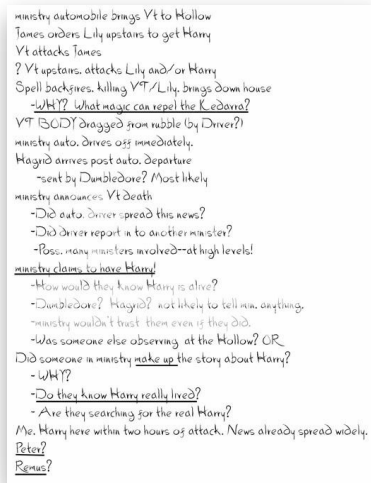 ministry automobile brings Vt to Hollow
James orders Lily upstairs to get Harry
Vt attacks James
? Vt upstairs, attacks Lily and/or Harry
Spell backfires, killing VT/Lily, brings down house
-WHY? What magic can repel the Kedavra?
VT BODY dragged from rubble (by Driver?)
ministry auto. drives off immediately.
Hagrid arrives post auto. departure
-sent by Dumbledore? Most likely
ministry announces Vt death
-Did auto. driver spread this news?
-Did driver report in to another minister?
-Poss. many ministers involved--at high levels!
ministry claims to have Harry!
-How would they know Harry is alive?
-Dumbledore? Hagrid? not likely to tell min. anything,
-ministry wouldn't trust them even if they did.
-Was someone else observing at the Hollow? OR
Did someone in ministry make up the story about Harry?
- WHY?
- Do they know Harry really lived?
- Are they searching for the real Harry?
Me. Harry here within two hours of attack. News already spread widely.
Peter?
Remus?